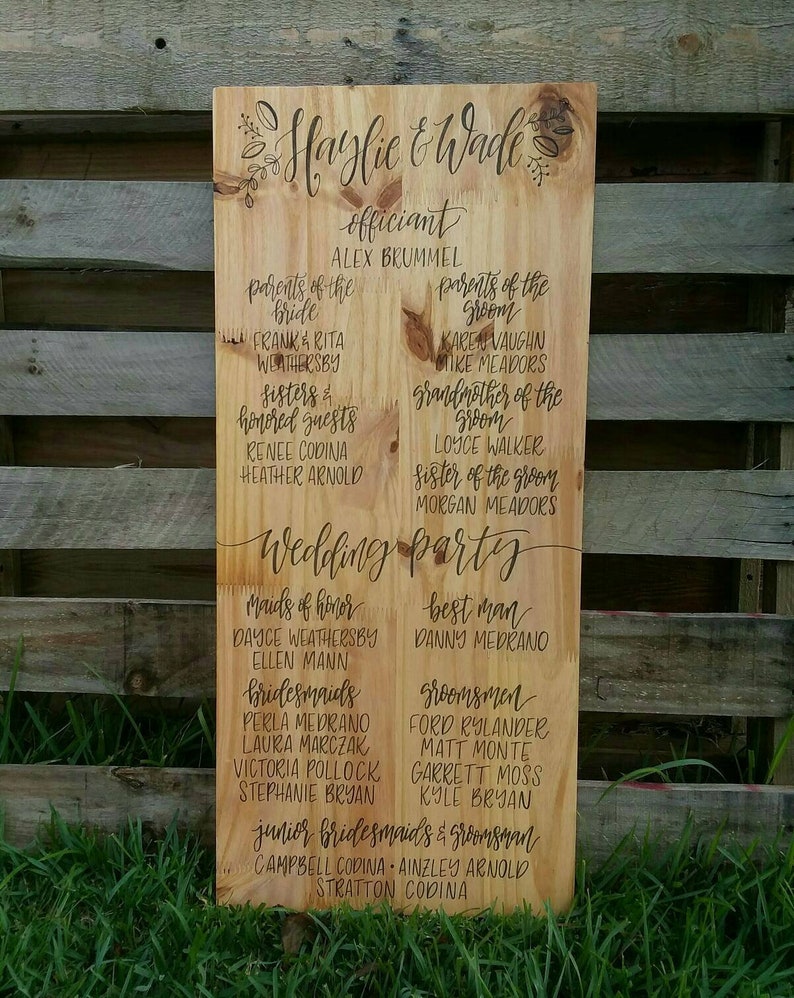 Haylie & Wade
officiant
ALEX BRUMMEL
parents of the
bride
FRANK & RITA
WEATHERSBY
sisters &
honored guests
RENEE CODINA
HEATHER ARNOLD
parents of the
groom
KAREN VAUGHN
MIKE MEADORS
grandmother of the
groom
LOYCE WALKER
sister of the groom
MORGAN MEADORS
wedding party
maids of honor
DAYCE WEATHERSBY
ELLEN MANN
bridesmaids
PERLA MEDRANO
LAURA MARCZAK
VICTORIA POLLOCK
STEPHANIE BRYAN
best man
DANNY MEDRANO
groomsmen
FORD RYLANDER
MATT MONTE
GARRETT MOSS
KYLE BRYAN
junior bridesmaids & groomsman
CAMPBELL CODINA • AINZLEY ARNOLD
STRATTON CODINA